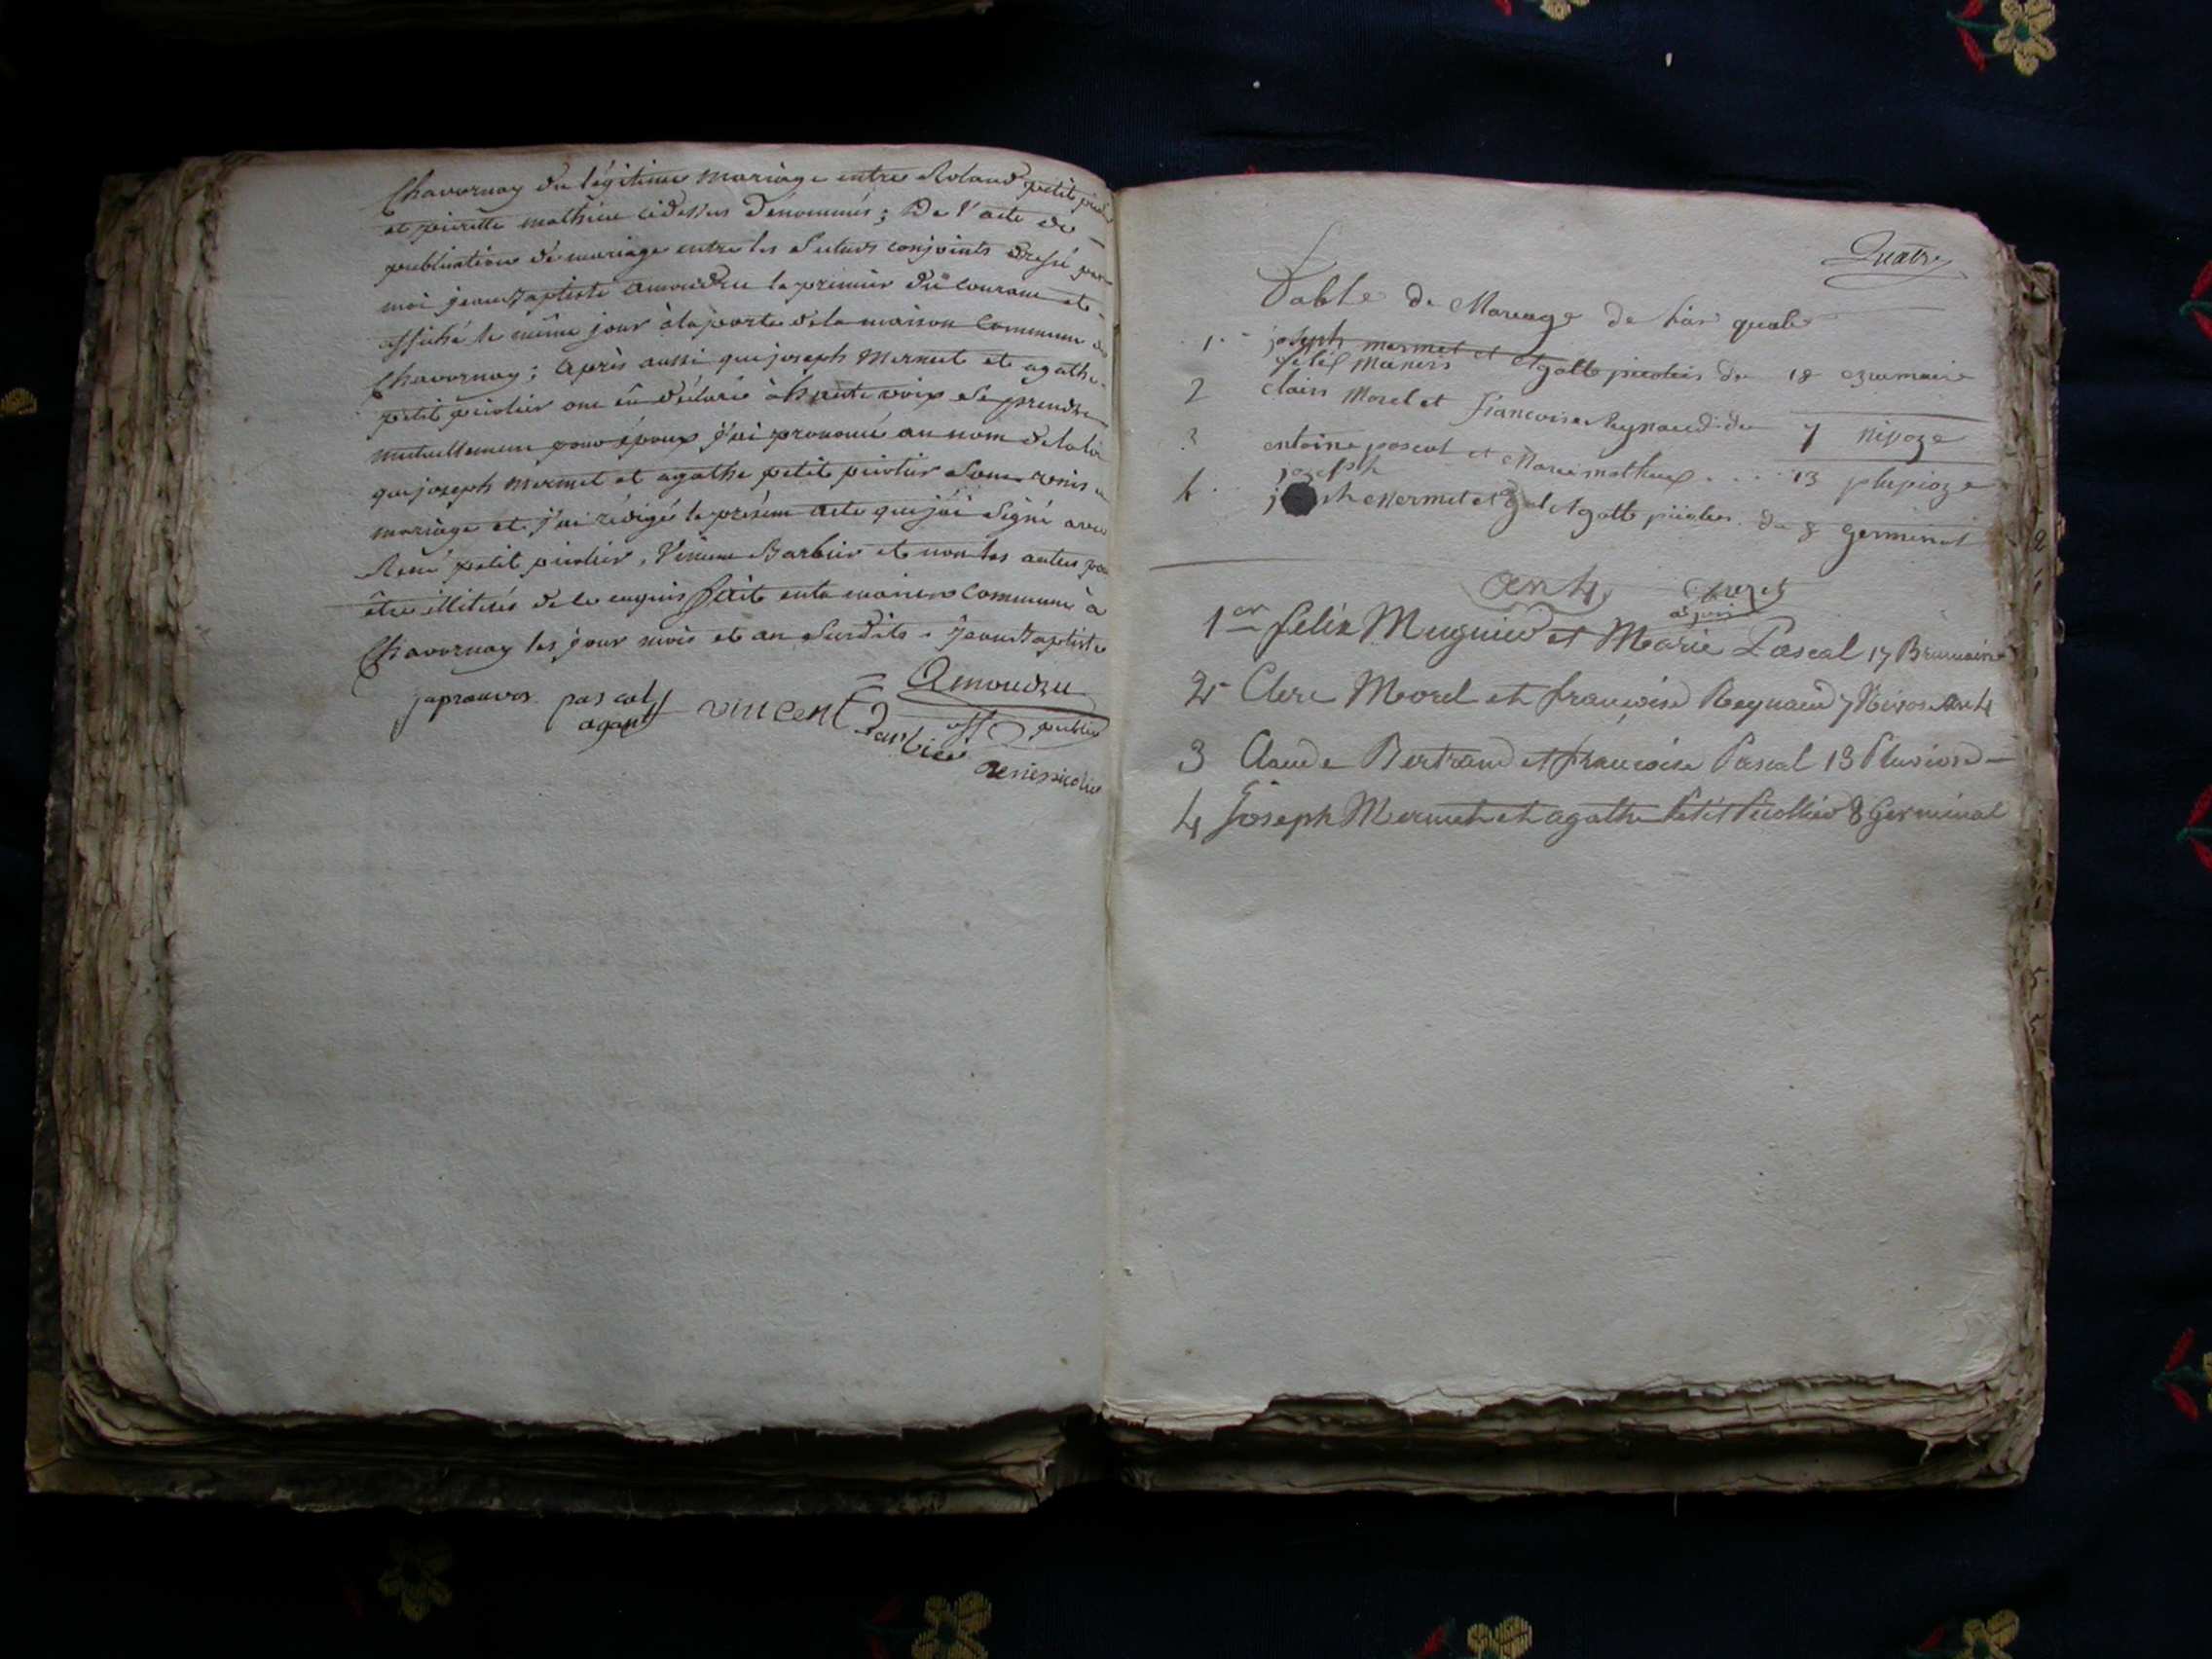 Chavornay du légitime mariage entre Roland petit
et pierette mathieu cidessus dénommés ; De l'acte de
publication de mariage entre les futurs conjoints dressé par
moi jean Baptiste amoudru le premier du courant et
affiché le même jour à la porte de la maison Commune de
Chavornay ; après aussi que joseph Mermet et agathe
petit picolier ont eû déclaré à haute voix se prendre
mutuellement pour époux j'ai prononcé au nom de la loi
que joseph mermet et agathe petit picolier sont unis en
mariage et j'ai rédigé le présent acte que j'ai signé avec
René petit picolier, Vincent Barbier et non les autres pour
être illitérés de ce enquis fait en la maison Commune à
Chavornay les jour mois et an susdits = Jean Baptiste
= Amoudru
off publie
japrouvos pascal
agant
vincent Barbier
rene picolie
Quatre
Table de Mariage de lan quatre
1 joseph mermet et Agatte picolier du 18 brumaire
felix
2 clair Morel et francoise Reynaud du 7 nivoze
3 antoine pascal et Marie mathieux .... 13 pluvioze
joseph
4 mermet et Agatte picolier du 8 germinal
an 4
1er felix Mugnier et Marie Pascal 17 Brumaire
2 Clerc Morel et françoise Reynaud 7 Nivose an 4
3 Claude Bertrand et françoise Pascal 13 Pluviose
4 Joseph Mermet et agathe Petit Picollier 8 Germinal